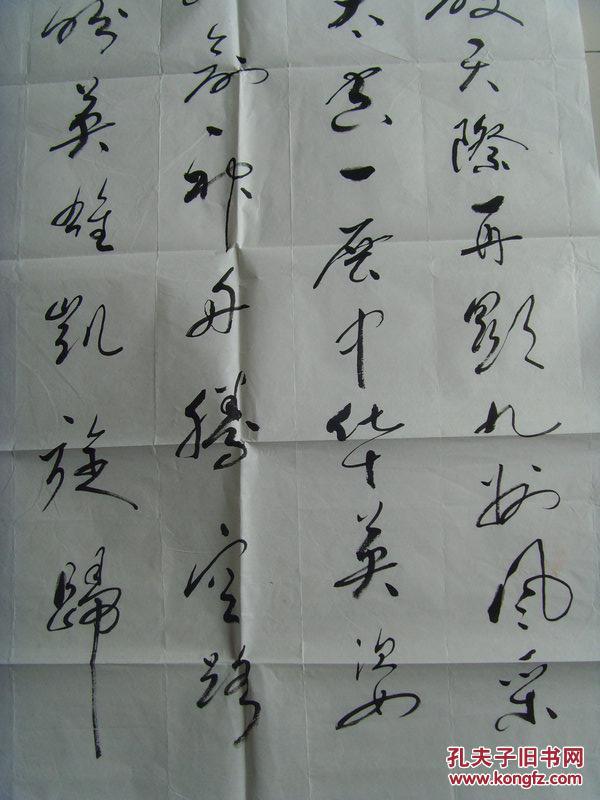 天際再顯九州风采
一展中华英姿
神舟騰空路
盼英雄凱旋歸
孔夫子旧书网
www.kongfz.com